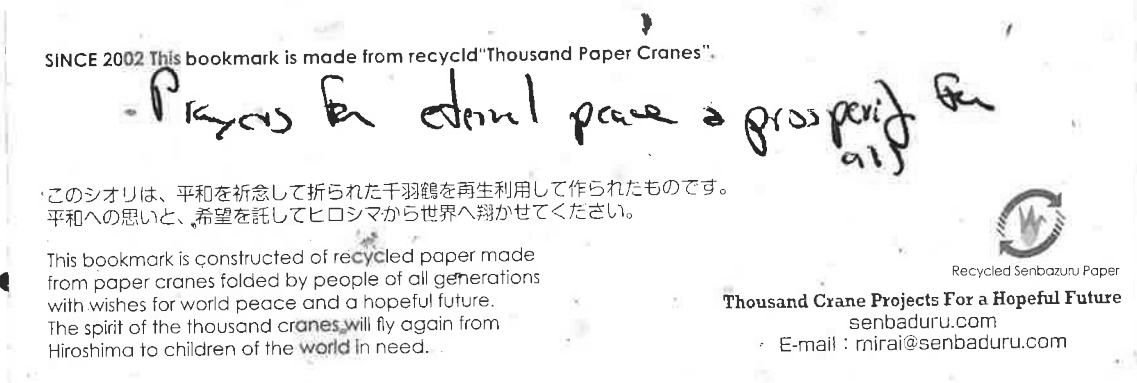 SINCE 2002 This bookmark is made from recycld"Thousand Paper Cranes".
Prayers for eternal peace & prosperity for
all
このシオリは、平和を祈念して折られた千羽鶴を再生利用して作られたものです。
平和への思いと、希望を託してヒロシマから世界へ翔かせてください。
This bookmark is constructed of recycled paper made
from paper cranes folded by people of all generations
with wishes for world peace and a hopeful future.
The spirit of the thousand cranes will fly again from
Hiroshima to children of the world in need.
Recycled Senbazuru Paper
Thousand Crane Projects For a Hopeful Future
senbaduru.com
E-mail：mirai@senbaduru.com